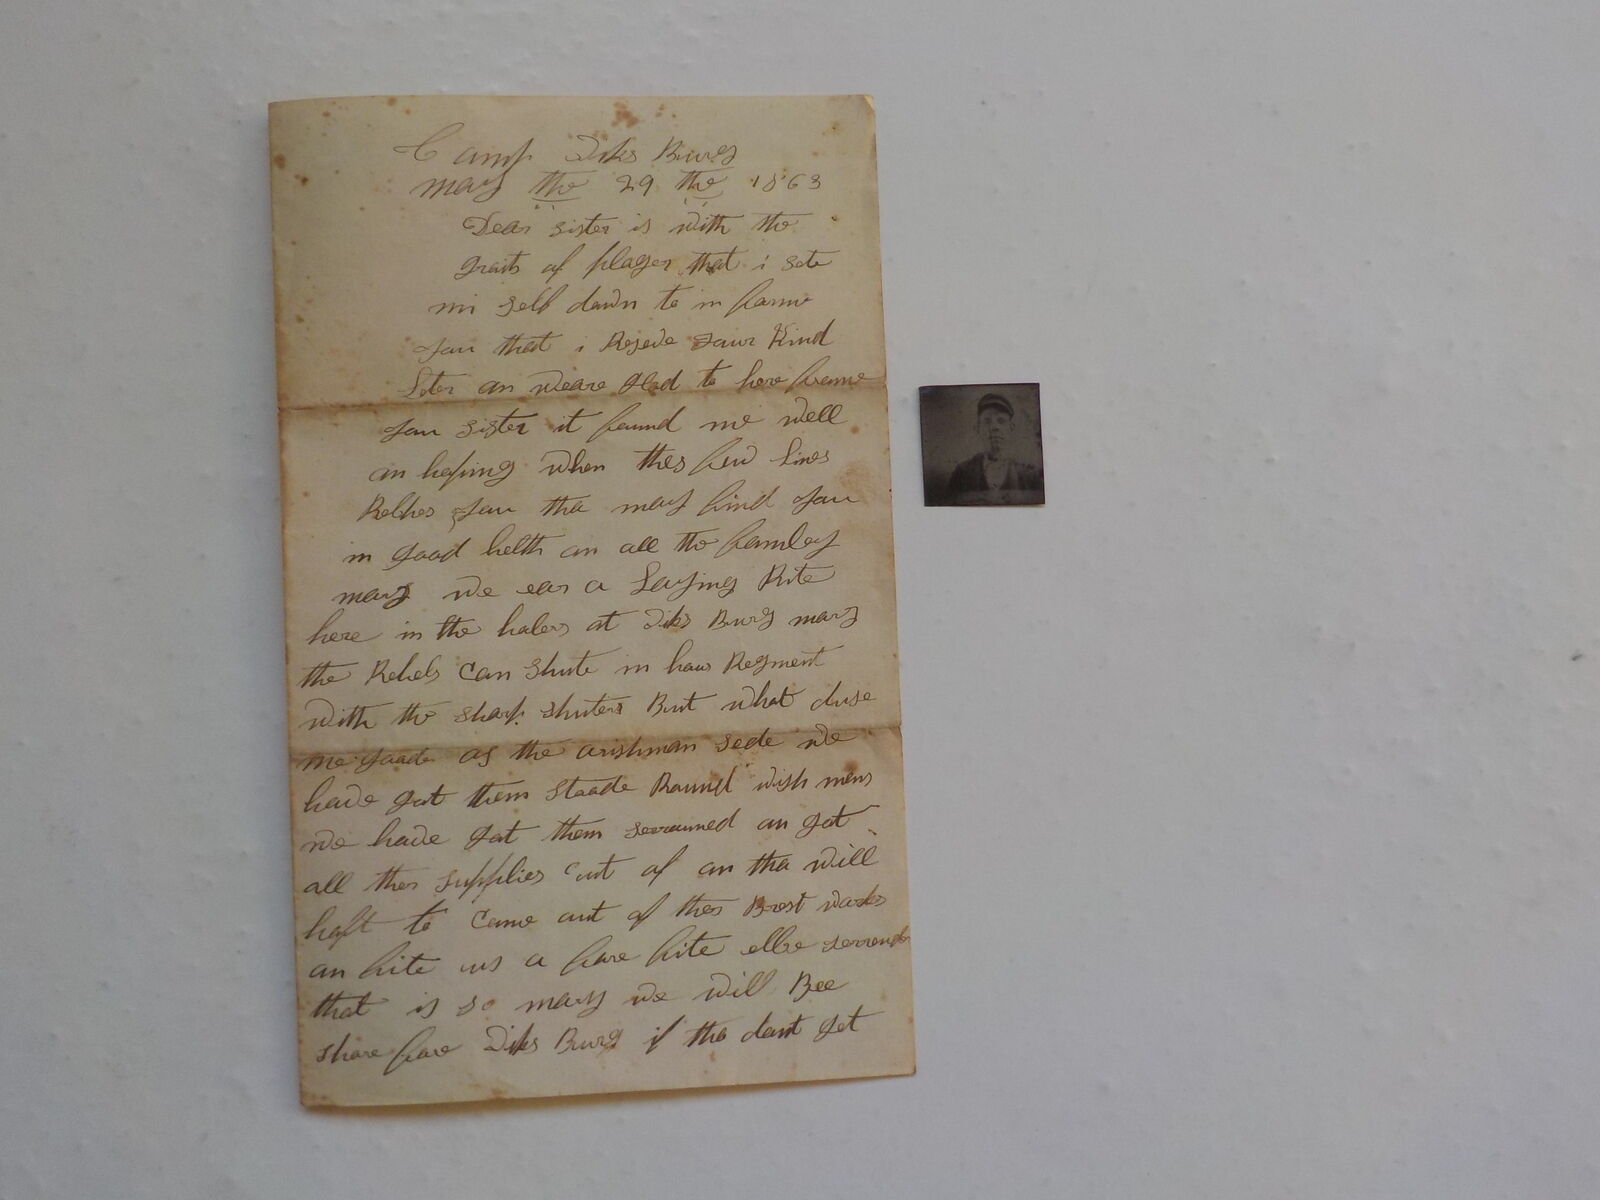 Camp Viks Burg
may the 29 the 1863
Dear sister is with the
grait of plager that i sete
mi self dawn to in farme
yau that i Reseve yaur Kind
Leter an weare glad to here frame
yau sister it faund me well
an hoping when thes few lines
Relhes yau tha may find yau
in good helth an all the famley
mary we ear a Laying Rite
here in the holers at Viks Burg mary
the Rebels Can shute in haur Regment
with the sharp shuters But what duse
me goode as the arishman sede we
have gat them staade Raund wish mens
we have gat them seerauned an gat
all ther supplies cut of an tha will
haft to Came aut of ther Brest warks
an fite us a fare fite ellse serrender
that is so mary we will Bee
share fare Viks Burg if tha dant get